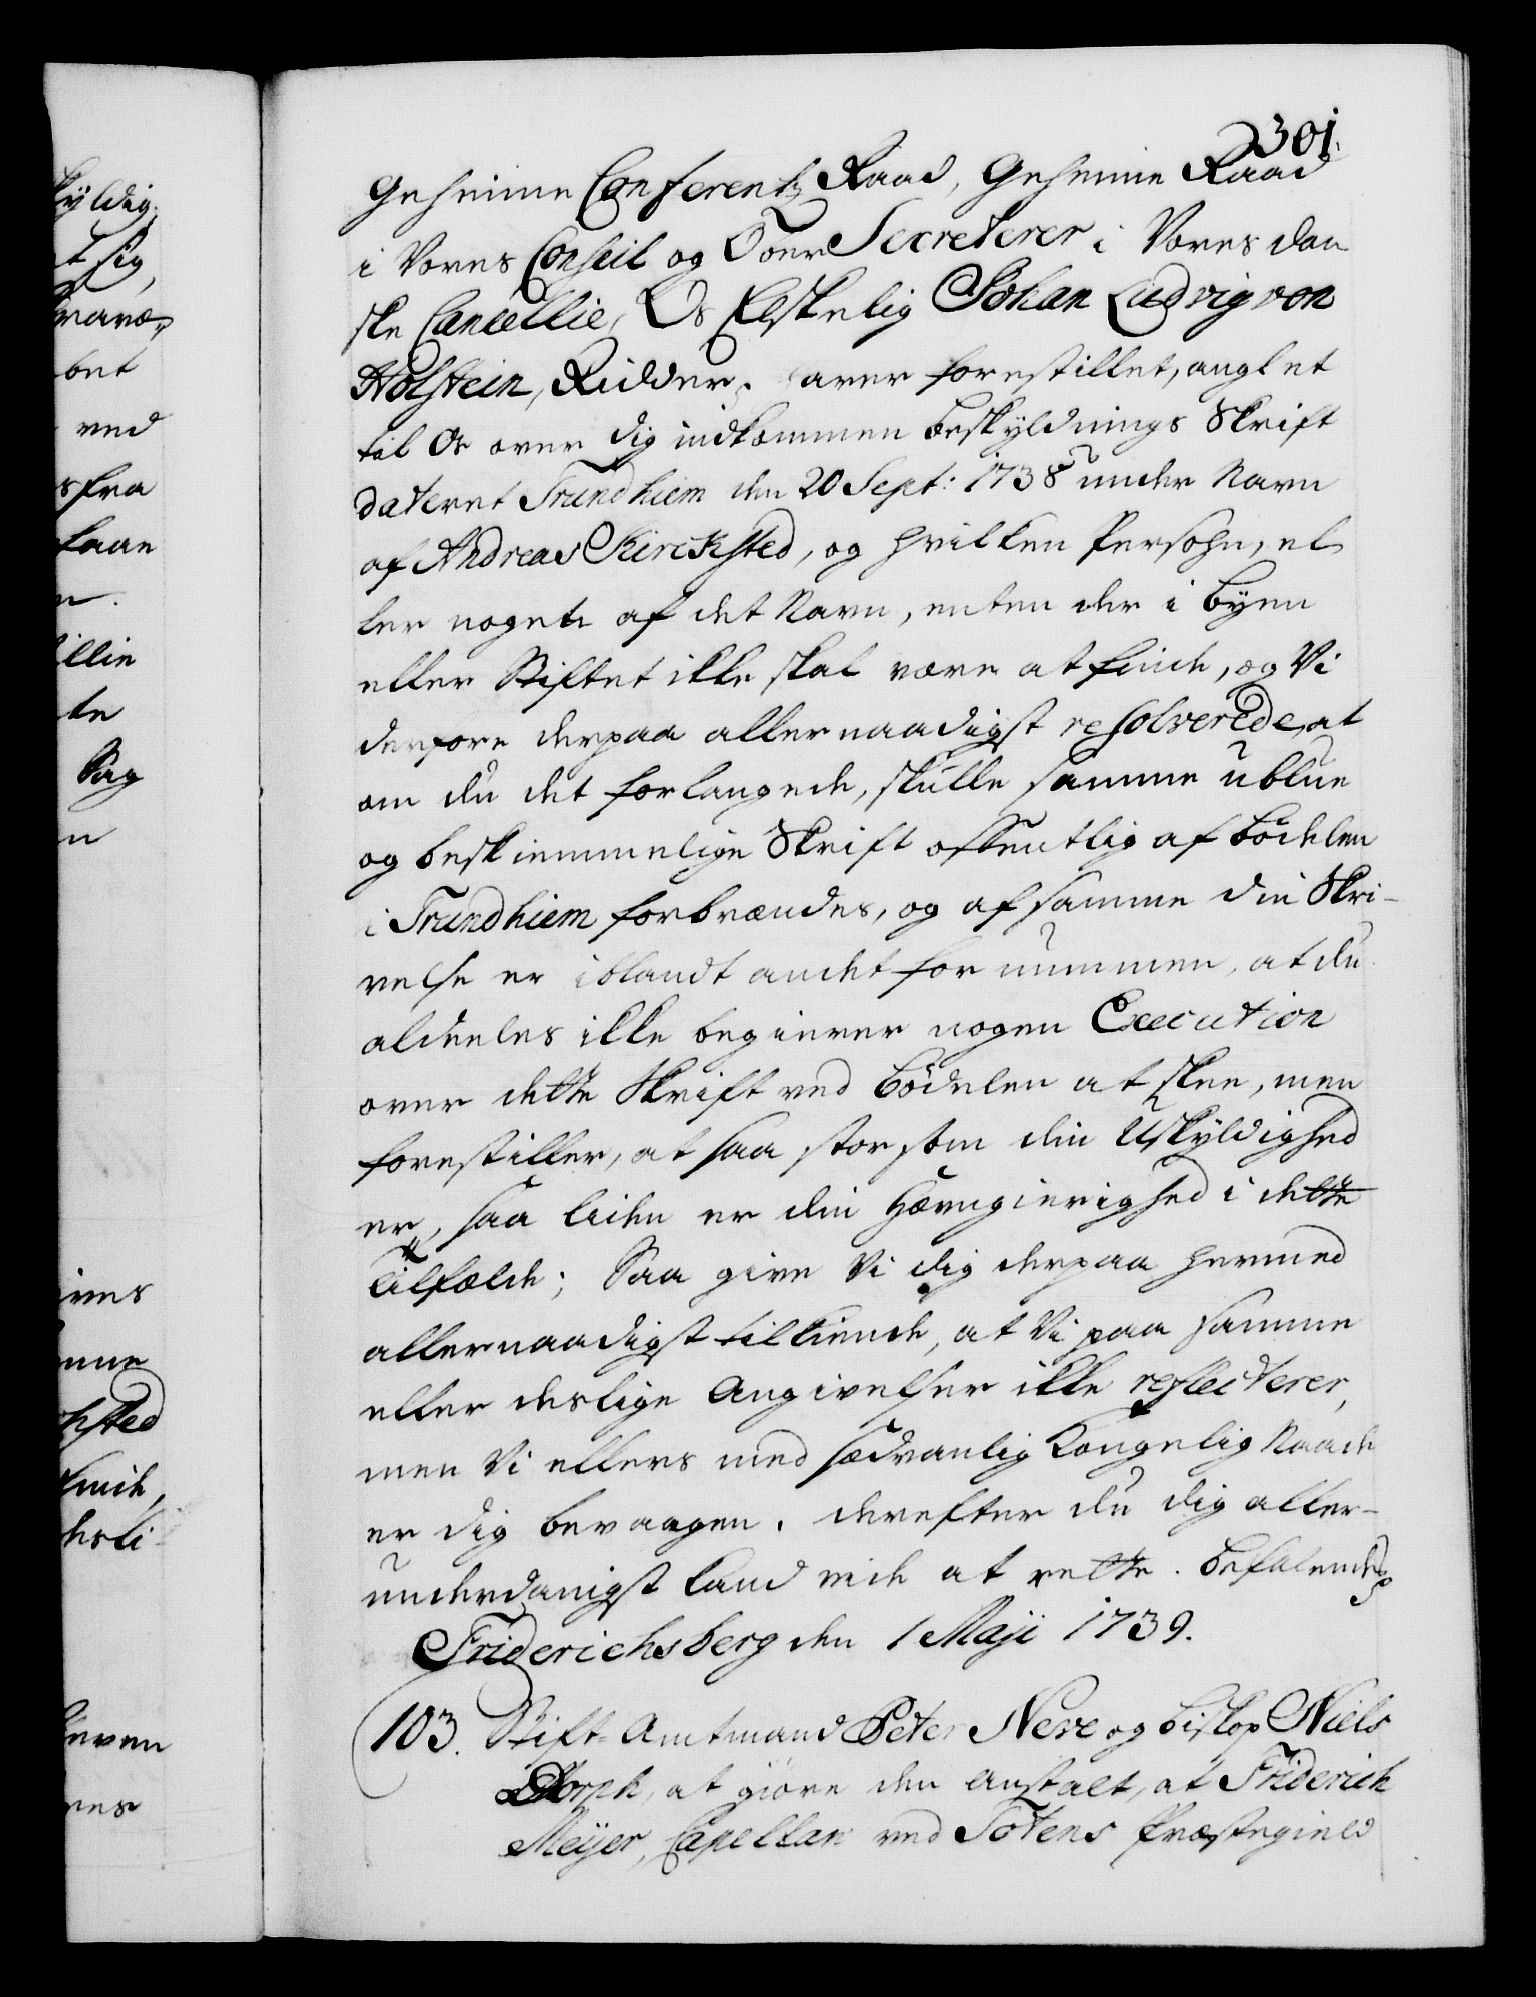 301.
Geheime Conferentz Raad, Geheime Raad
i Vores Conseil og Ober Secreterer i Vores dan
ske Cancellie, Os Elskelig Johan Ludvig von
Holstein, Ridder, haver forestillet, angl et
til Os over dig indkommen Beskyldnings Skrift
dateret Trundhiem den 20 Sept: 1738 under Navn
af Andreas Kirchsted, og hvilken Persohn, el
ler nogen af det Navn, enten der i Byen
eller Stiftet ikke skal være at finde, og Vi
derfore derpaa allernaadigst resolverede, at
om du det forlangede, skulle samme ublue
og beskiemmelige Skrift offentlig af Bødelen
i Trundhiem forbrændes, og af samme din Skri-
velse er iblandt andet fornummen, at du
aldeeles ikke begierer nogen Execution
over dette Skrift ved Bødelen at skee, men
forestiller, at saa stor som din Uskyldighed
er, saa liden er din Hævngierighed i dette
Tilfælde; Saa give Vi dig derpaa hermed
allernaadigst tilkiende, at Vi paa samme
eller deslige Angivelser ikke reflecterer,
men Vi ellers med sædvanlig Kongelig Naade
er dig bevaagen. derefter du dig aller-
underdanigst kand vide at rette. Befalendes
Friderichsberg den 1 Maji 1739.
103. Stift-Amtmand Peter Neve og Biskop Niels
Dorph, at giøre den Anstalt, at Friderich
Meyer, Capellan ved Totens Præstegield